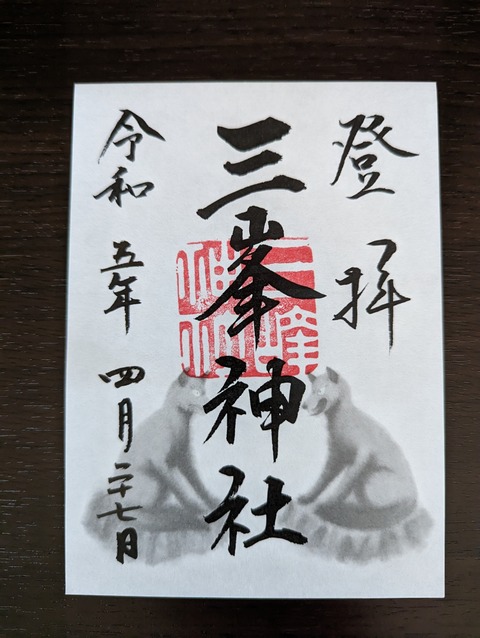 登拝
三峯神社
令和五年四月二十七日